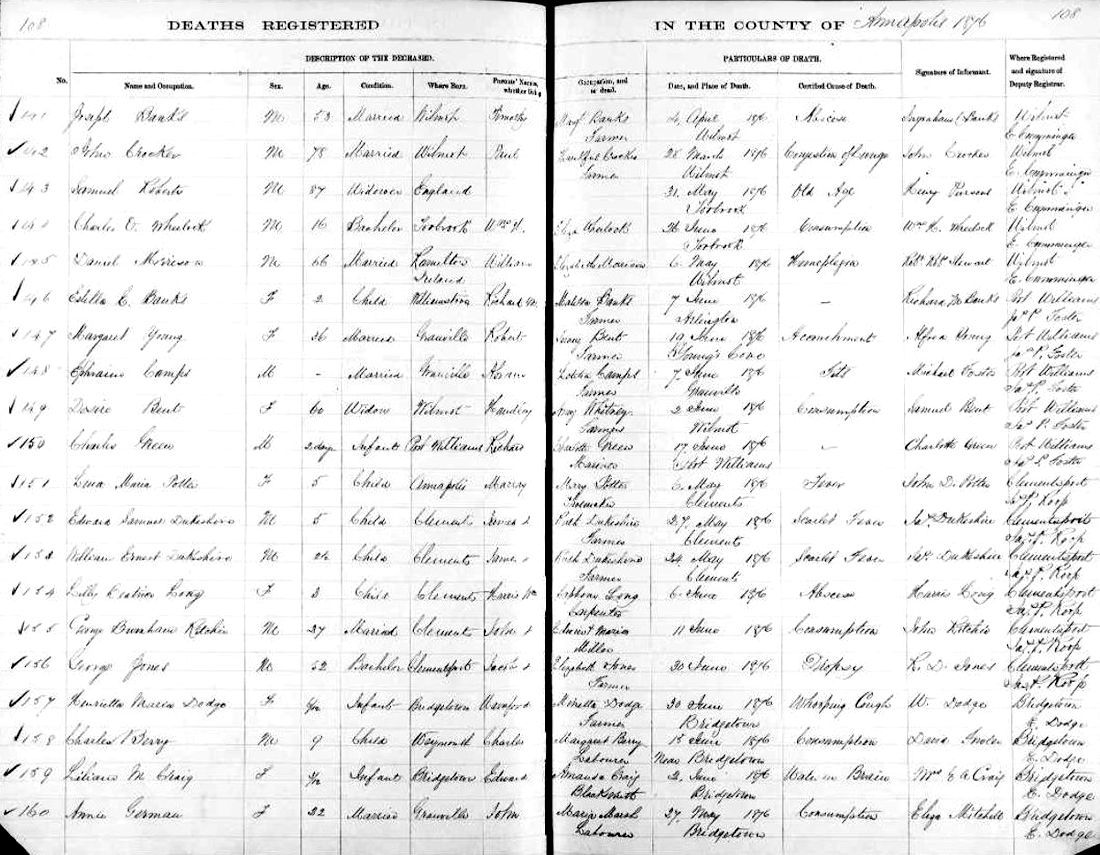 108 DEATHS REGISTERED IN THE COUNTY OF Annapolis 1876 108
DESCRIPTION OF THE DECEASED. PARTICULARS OF DEATH.
No. Name and Occupation. Sex. Age. Condition. Where Born. Parents' Names, whether living or dead. Occupation, and Date, and Place of Death. Certified Cause of Death. Signature of Informant. Where Registered and signature of Deputy Registrar.
141 Joseph Banks M 53 Married Wilmot Timothy Banks 4 April 1876 Abscess Banks Wilmot
Farmer Wilmot E Cumminger
142 John Crocker M 78 Married Wilmot Paul Crocker 28 March 1876 Congestion of Lungs John Crocker Wilmot
Farmer Wilmot E Cumminger
143 Samuel Roberts M 87 Widower England 31 May 1876 Old Age Henry Wilmot
Torbrook E Cumminger
Charles O. Wheelock M 16 Bachelor Torbrook Wm H. Eliza Wheelock 26 June 1876 Consumption Wm H. Wheelock Wilmot
Torbrook E Cumminger
145 Daniel Morrison M 66 Married Ireland William Morrison 6 May 1876 Stewart Wilmot
Wilmot E Cumminger
146 Estella C. Banks F 2 Child Williamston Richard Matilda Banks 7 June 1876 — Richard W Banks Port Williams
Farmer Arlington Jas P. Foster
147 Margaret Young F 36 Married Granville Robert Bent 19 June 1876 Accouchment Alfred Young Pot Williams
Farmer Young's Cove Jas P. Foster
148 Ephraim Camps M - Married Granville Letitia Campt 7 June 1876 Fits Michael Foster Pot Williams
Farmer Granville Jas P. Foster
149 Desire Bent F 60 Widow Wilmot Handley Mary Whitney 2 June 1876 Consumption Samuel Bent Pot Williams
Farmer Wilmot Jas P. Foster
150 Charles Green M 2 days Infant Port Williams Richard Charlotte Green 17 June 1876 — Charlotte Green Port Williams
Mariner Port Williams Jas P. Foster
151 Lena Maria Potter F 5 Child Annapolis Murray Mary Potter May 1876 Fever John D. Potter Clementsport
Clements Jas P. Roop
152 Edward Samuel Dukeshire M 5 Child Clements James Ruth Dukeshire 27 May 1876 Scarlet Fever Jas. Dukeshire Clementsport
Farmer Clements Jas P. Roop
153 William Ernest Dukeshire M Child Clements James Ruth Dukeshire 24 May 1876 Scarlet Fever Jas. Dukeshire Clementsport
Farmer Clements Jas P. Roop
154 Lilly Beatrice Long F 2 Child Clements Harris Wm Long 6 June 1876 Abscess Harris Long Clementsport
Carpenter Jas P. Roop
155 George Burnham Ritchie M 27 Married Clements John Maria 11 June 1876 Consumption John Ritchie Clementsport
Miller Jas P. Roop
156 George Jones M 52 Bachelor Clementsport Jacob Elizabeth Jones 30 June 1876 Dropsy R. D. Jones Clementsport
Farmer Jas P. Roop
157 Henrietta Maria Dodge F Infant Bridgetown Dodge 30 June 1876 Whooping Cough W. Dodge Bridgetown
Farmer Bridgetown E Dodge
158 Charles Berry M 9 Child Weymouth Charles Margaret Berry 15 June 1876 Consumption Bridgetown
Labourer Near Bridgetown E. Dodge
159 Lilian M Craig F Infant Bridgetown Edward Amanda Craig 2 June 1876 Water on Brain Mrs E A Craig Bridgetown
Blacksmith Bridgetown E. Dodge
160 Annie German F 22 Married Granville John Maria Marsh 27 May 1876 Consumption Eliza Mitchell Bridgetown
Labourer Bridgetown E. Dodge